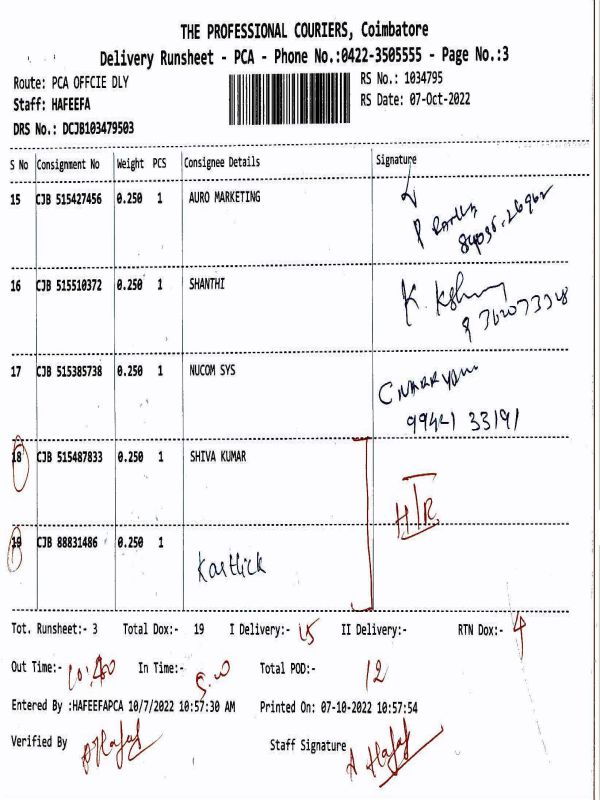 THE PROFESSIONAL COURIERS, Coimbatore
Delivery Runsheet - PCA - Phone No.:0422-3505555 - Page No.:3
Route: PCA OFFCIE DLY RS No.: 1034795
Staff: HAFEEFA RS Date: 07-Oct-2022
DRS No.: DCJB103479503
S No Consignment No Weight PCS Consignee Details Signature
15 CJB 515427456 0.250 1 AURO MARKETING
16 CJB 515510372 0.250 1 SHANTHI
17 CJB 515385738 0.250 1 NUCOM SYS
99421 33191
18 CJB 515487833 0.250 1 SHIVA KUMAR
HTR
19 CJB 88831486 0.250 1 Karthick
Tot. Runsheet:- 3 Total Dox:- 19 I Delivery:- 15 II Delivery:- RTN Dox:- 4
Out Time:- 10:40 In Time:- Total POD:- 12
Entered By :HAFEEFAPCA 10/7/2022 10:57:30 AM Printed On: 07-10-2022 10:57:54
Verified By Staff Signature